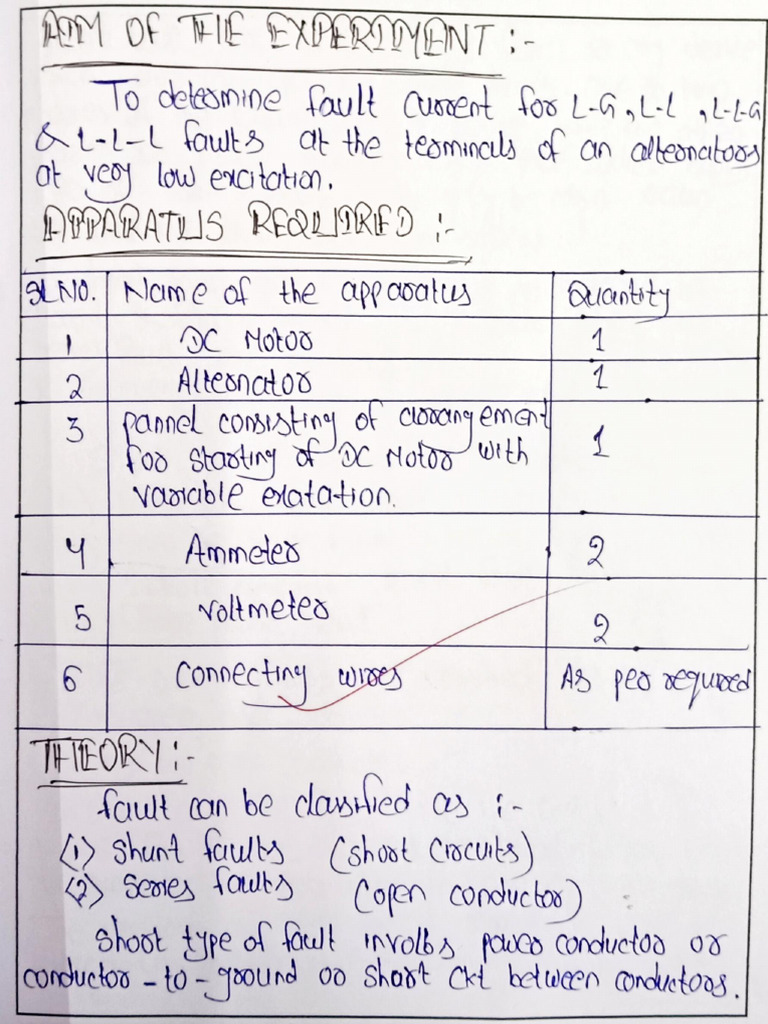 AIM OF THE EXPERIMENT :-
To determine fault current for L-G, L-L, L-L-G
& L-L-L faults at the terminals of an alternators
at very low excitation.
APPARATUS REQUIRED :-
SL NO. Name of the apparatus Quantity
1 DC Motor 1
2 Alternator 1
3 pannel consisting of arrangement
for starting of DC Motor with 1
variable exatation.
4 Ammeter 2
5 voltmeter 2
6 Connecting wires As per required
THEORY :-
fault can be classified as :-
(1) Shunt faults (short circuits)
(2) Series faults (open conductor)
Short type of fault involbs power conductor or
conductor-to-ground or short ckt between conductors.